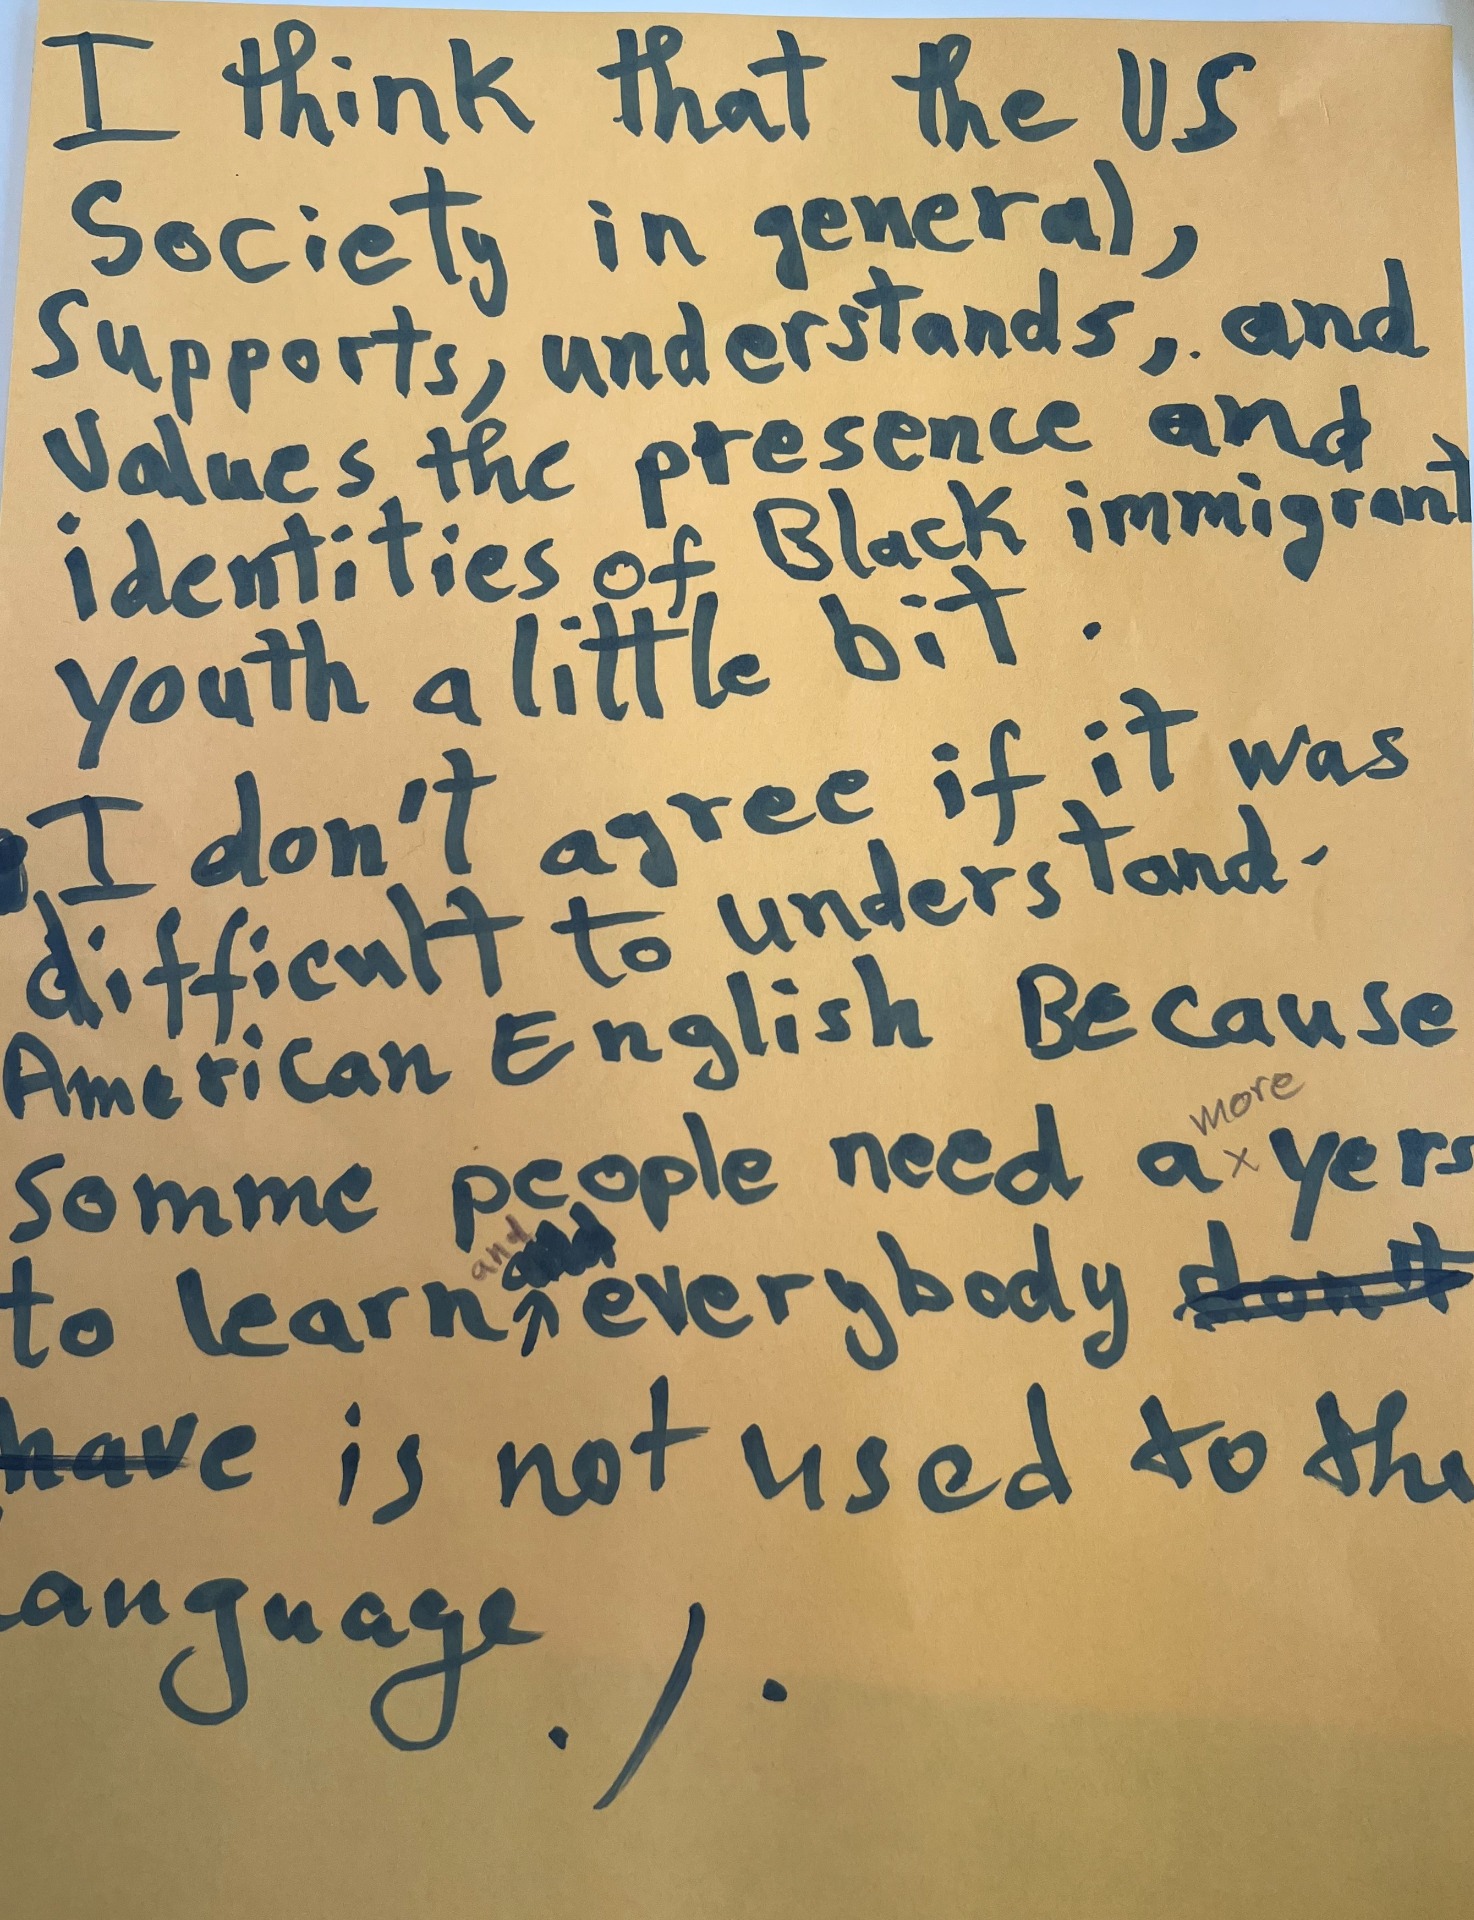 I think that the US
Society in general,
Supports, understands, and
Values the presence and
identities of Black immigrant
youth a little bit.
I don't agree if it was
difficult to understand
American English Because
more
somme people need a x yers
and
to learn everybody don't
have is not used to the
Language./.